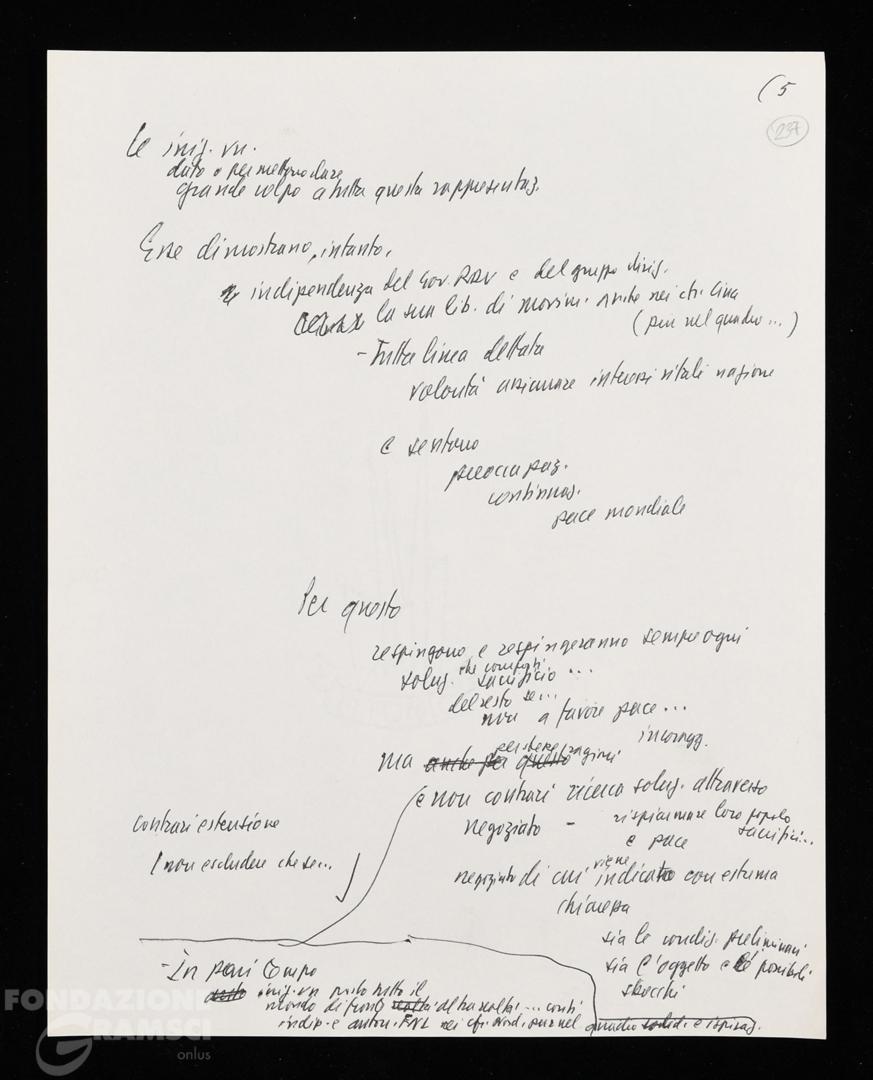 (5
237
Le iniz. vn.
dato o permettono dare
grande colpo a tutta questa rappresentaz.
Esse dimostrano, intanto,
indipendenza del Gov. RDV e del gruppo dirig.
la sua lib. di movim. anche nei cfr. Cina
(pur nel quadro ...)
- Tutta linea dettata
volontà assicurare interessi vitali nazione
e sentono
preoccupaz.
continuaz.
pace mondiale
Per questo
respingono e respingeranno sempre ogni
soluz. che comporti sacrificio ...
del resto se...
non a favore pace...
incoragg.
ma anche per questo per stesse ragioni
e non contrari ricerca soluz. attraverso
negoziato - risparmiare loro popolo
e pace sacrifici...
contrari estensione
/ non escludere che se...
negoziato di cui viene indicato con estrema
chiarezza
sia le condiz. preliminari
sia l'oggetto e possibili
sbocchi
- In pari tempo
iniz. vn posto tutto il
mondo di fronte altra realtà: ...
indip. e auton. FNL nei cfr. Nord, pur nel quadro solid. e ispiraz.
FONDAZIONE
GRAMSCI
onlus